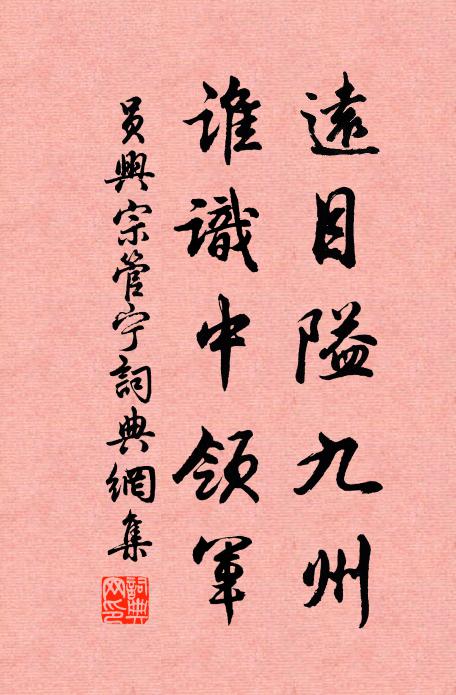 遠目隘九州
誰識中領軍
員興宗管宁詞典網集
詞典
网印